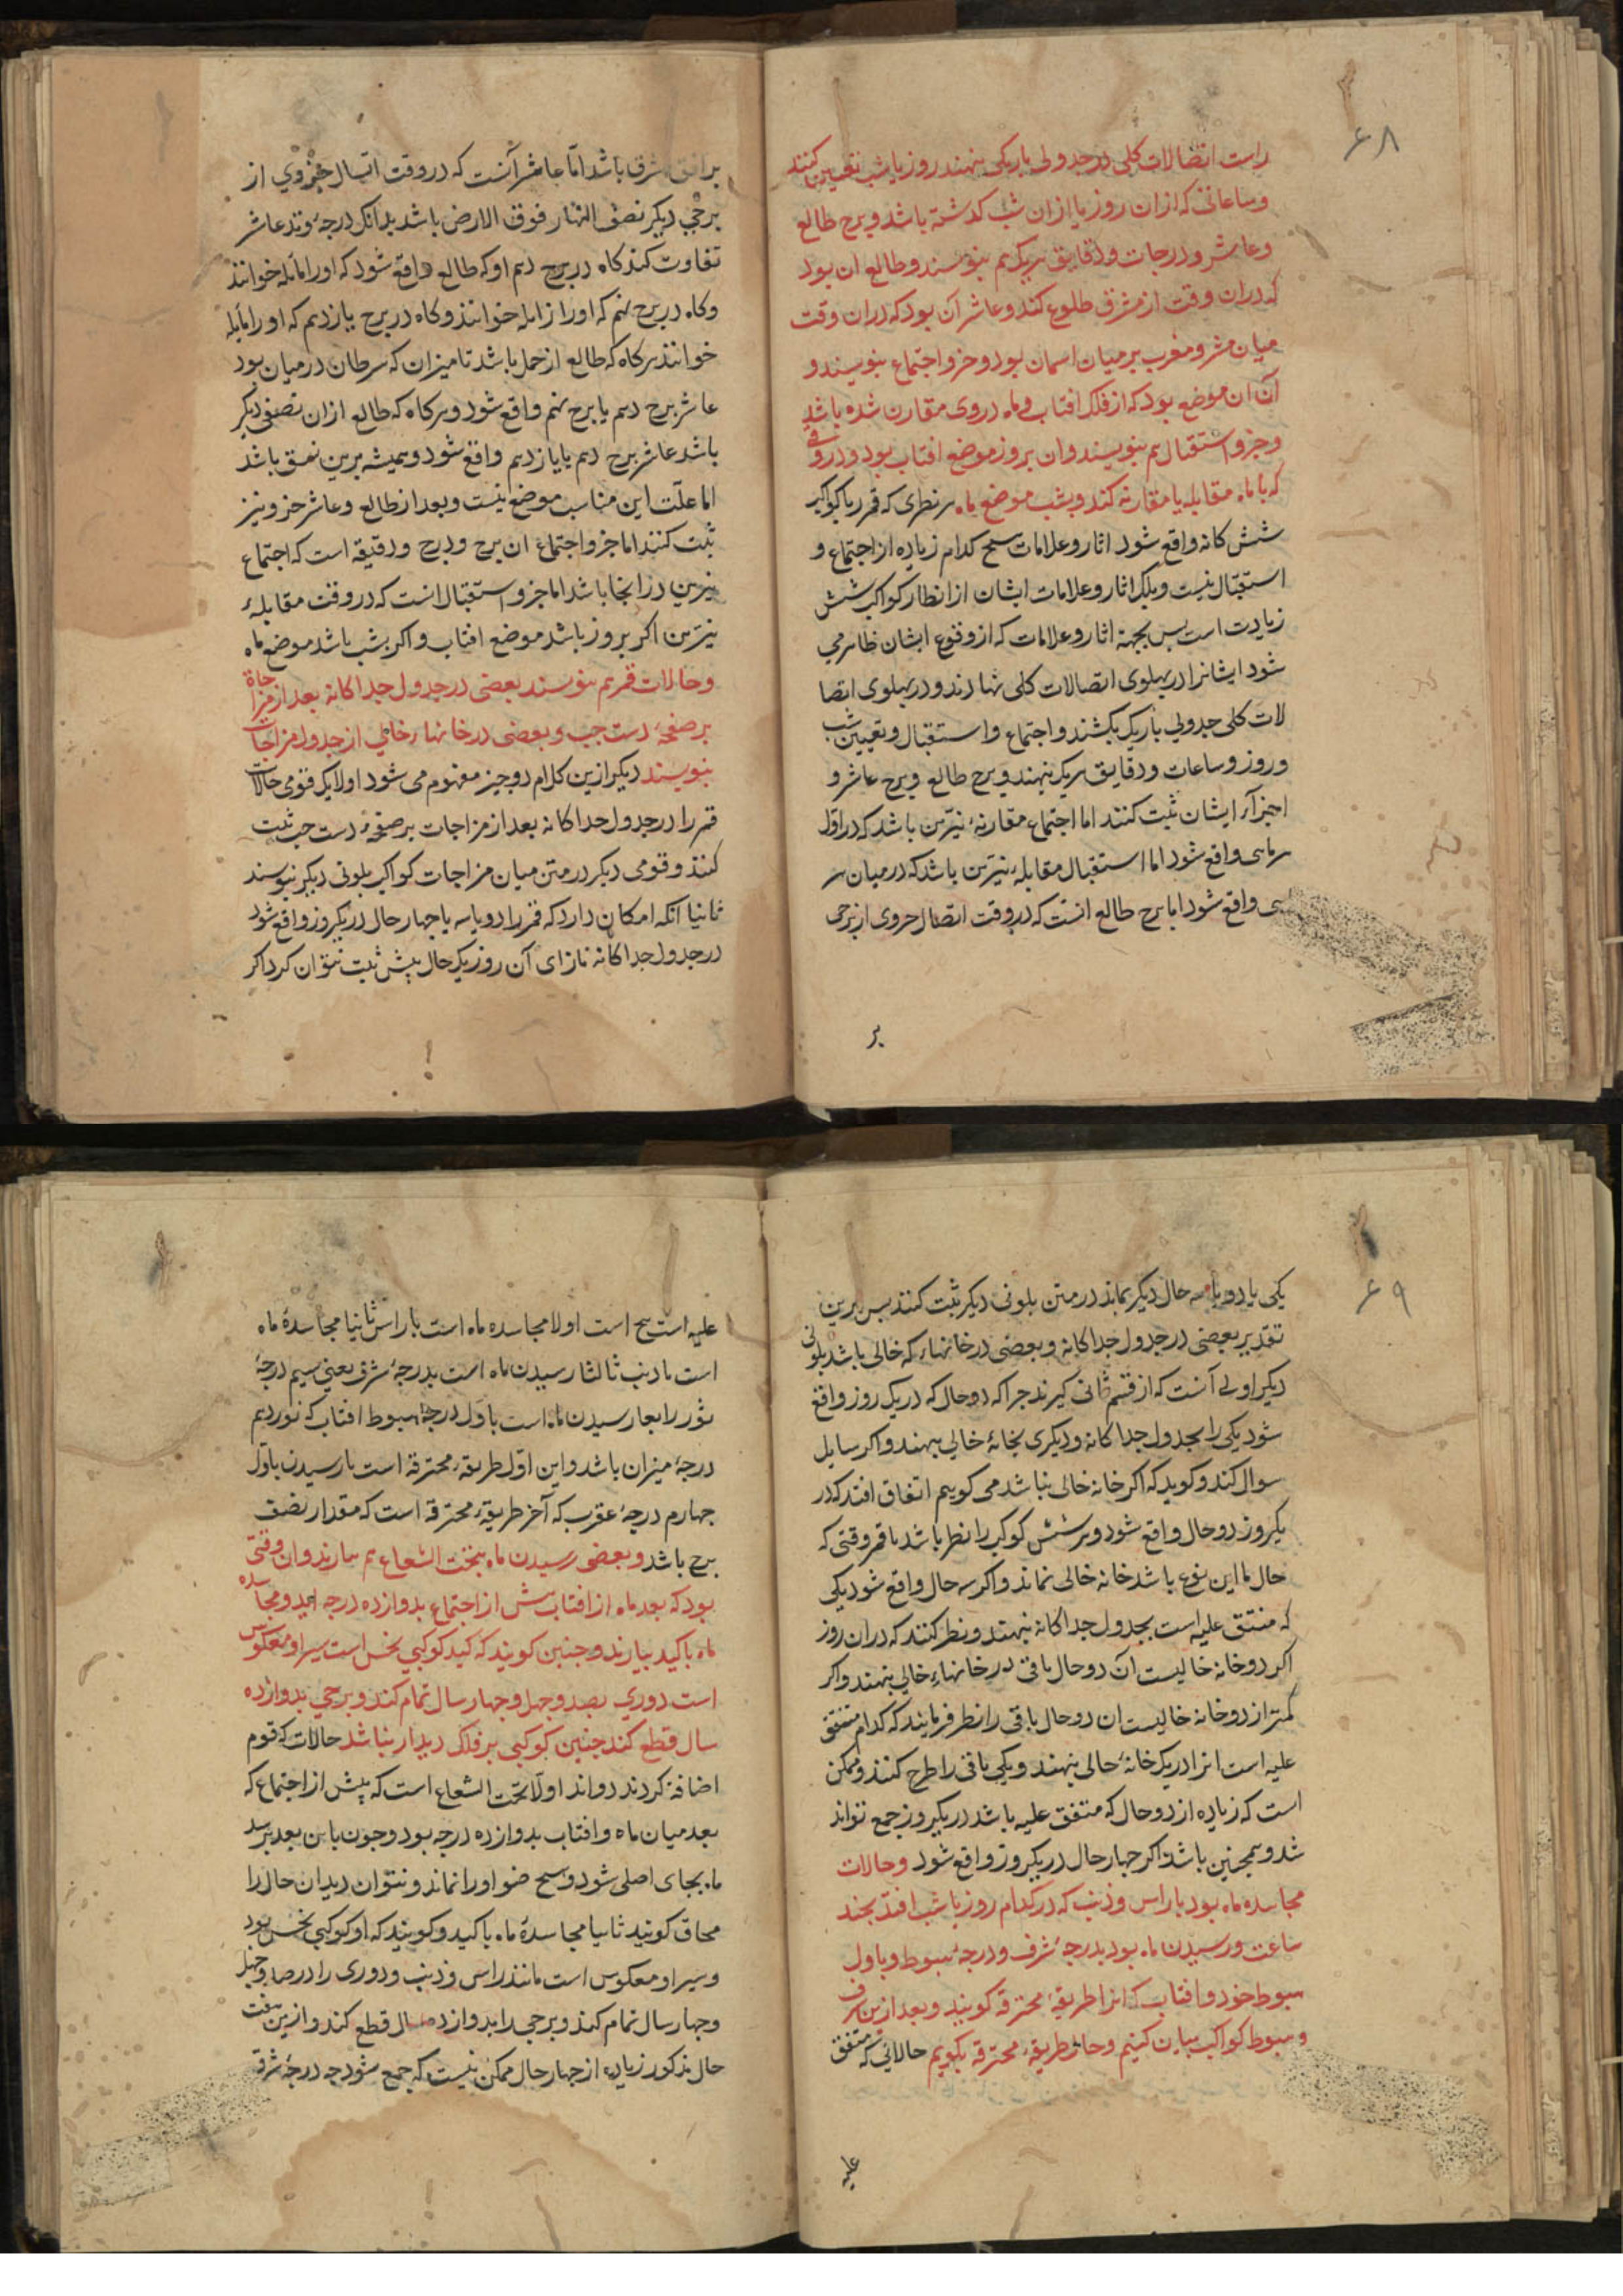 ۶۸
راست اتصالات کلی در جدولی باریکی بنهند روز یا شب تعیین کنند
و ساعاتی که ازان روز یا ازان شب کذشته باشد و برج طالع
و عاشر و درجات و دقایق هریک هم بنویسند و طالع ان بود
که دران وقت از مشرق طلوع کند و عاشر آن بود که دران وقت
میان مشرو مغرب بر میان اسمان بود و جزو اجتماع بنویسند و
آن ان موضع بود که از فلک افتاب و ماه در وی مقارن شده باشد
و جزو استقبال هم بنویسند و ان بروز موضع افتاب بود و در وقتی
که با ماه مقابله یا مقارنه کند و بشب موضع ماه هر نظری که قمر را با کواکب
شش کانه واقع شود اثار و علامات هیچ کدام زیاده از اجتماع و
استقبال نیست و بلک اثار و علامات ایشان از انظار کواکب شش
زیادت است بس بجهة اثار و علامات که از وقوع ایشان ظاهر می
شود ایشانرا در بهلوی اتصالات کلی نهادند و در بهلوی اتصا
لات کلی جدولی باریک بکشند و اجتماع و استقبال و تعیین شب
و روز و ساعات و دقایق هریک بنهند و برج طالع و برج عاشر و
اجزآء ایشان ثبت کنند اما اجتماع مقارنهٔ نیّرین باشد که در اوّل
هر ماهی واقع شود اما استقبال مقابلهٔ نیّرین باشد که در میان هر
هی واقع شود اما برج طالع انست که در وقت اتصال جزوی از برجی
بر
بر افق مشرق باشد امّا عاشر آنست که در وقت اتصال جزوی از
برجی دیکر نصف النهار فوق الارض باشد بدانک درجهٔ وتد عاشر
تفاوت کند کاه در برج دهم او که طالع واقع شود که اورا مایله خوانند
و کاه در برج نهم که اورا زایله خوانند و کاه در برج یازدهم که اورا مایله
خوانند هرکاه که طالع از حمل باشد تا میزان که سرطان در میان بود
عاشر برج دهم یا برج نهم واقع شود و هرکاه که طالع ازان نصفی دیکر
باشد عاشر برج دهم یا یازدهم واقع شود و همیشه برین نسق باشد
اما علّت این مناسب موضع نیست و بعد از طالع و عاشر جزو نیز
ثبت کنند اما جزو اجتماع ان برج و درج و دقیقه است که اجتماع
نیرین در انجا باشد اما جزو استقبال انست که در وقت مقابلهٔ
نیّرین اکر بروز باشد موضع افتاب و اکر بشب باشد موضع ماه
و حالات قمر هم بنویسند بعضی در جدول جداکانه بعد از مزاجات
بر صفحهٔ دست جب و بعضی در خانهاء خالی از جدول مزاجات
بنویسند دیکر ازین کلام دو جیز مفهوم می شود اولا یک قومی حالات
قمر را در جدول جداکانه بعد از مزاجات بر صفحهٔ دست جب ثبت
کنند و قومی دیکر در متن میان مزاجات کواکب بلونی دیکر بنویسند
ثانیا انکه امکان دارد که قمر را دو یا سه یا جهار حال در یکروز واقع شود
در جدول جداکانه بازای آن روز یک حال بیش ثبت نتوان کرد اکر
۶۹
یکی یا دو یا سه حال دیکر بماند در متن بلونی دیکر ثبت کنند بس برین
تقدیر بعضی در جدول جداکانه و بعضی در خانهاء که خالی باشد بلونی
دیکر اولی آنست که از قسم ثانی کیرند جرا که دو حال که در یک روز واقع
شود یکی را بجدول جداکانه و دیکری بخانهٔ خالی بنهند و اکر سایل
سوال کند و کوید که اکر خانه خالی نباشد می کوییم اتفاق افتد که در
یکروز دو حال واقع شود و هر شش کوکب را نظر باشد با قمر وقتی که
حال با این نوع باشد خانه خالی نماند و اکر سه حال واقع شود یکی
که متفق علیه است بجدول جداکانه بنهند و نظر کنند که دران روز
اکر دو خانه خالیست آن دو حال باقی در خانهاء خالی بنهند و اکر
کمتر از دو خانه خالیست ان دو حال باقی را نظر فرمایند که کدام متفق
علیه است انرا در یک خانهٔ خالی بنهند و یکی باقی را طرح کنند و ممکن
است که زیاده از دو حال که متفق علیه باشد در یکروز جمع تواند
شد و همجنین باشد اکر جهار حال در یکروز واقع شود و حالات
مجاسده ماه بود با راس و ذنب که در کدام روز یا شب افتد بجند
ساعت و رسیدن ماه بود بدرجهٔ شرف و درجهٔ هبوط و باول
هبوط خود و افتاب که انرا طریقهٔ محترقه کویند و بعد ازین شرف
و هبوط کواکب بیان کنیم و حال طریقهٔ محترقه بکوییم حالاتی که متفق
علیه
علیه است پنج است اولا مجاسده ماه است با راس ثانیا مجاسدهٔ ماه
است با ذنب ثالثا رسیدن ماه است بدرجهٔ شرف یعنی سیم درجهٔ
ثور رابعا رسیدن ماه است باوّل درجهٔ هبوط افتاب که نوزدهم
درجهٔ میزان باشد و این اوّل طریقهٔ محترقه است باز رسیدن باوّل
جهارم درجهٔ عقرب که آخر طریقهٔ محترقه است که مقدار نصف
برج باشد و بعضی رسیدن ماه بتحت الشعاع هم بیارند و ان وقتی
بود که بعد ماه از افتاب بیش از اجتماع بدوازده درجه اید و مجاسده
ماه با کید بیارند و جنین کویند که کید کوکبی نحس است سیر او معکوس
است دوری بصد و جهل و جهار سال تمام کند و برجی بدوازده
سال قطع کند جنین کوکبی بر فلک دیدار نباشد حالات که قوم
اضافه کردند دواند اولا تحت الشعاع است که پیش از اجتماع که
بعد میان ماه و افتاب بدوازده درجه بود و جون باین بعد برسد
ماه بجای اصلی شود و هیچ ضو اورا نماند و نتوان دید ان حال را
محاق کویند ثانیا مجاسدهٔ ماه با کید و کویند که او کوکبی نحس بود
و سیر او معکوس است مانند راس و ذنب و دوری را در صد و جهل
و جهار سال تمام کند و برجی را بدوازده سال قطع کند و ازین هفت
حال مذکور زیاده از جهار حال ممکن نیست که جمع شود جه درجهٔ شرف